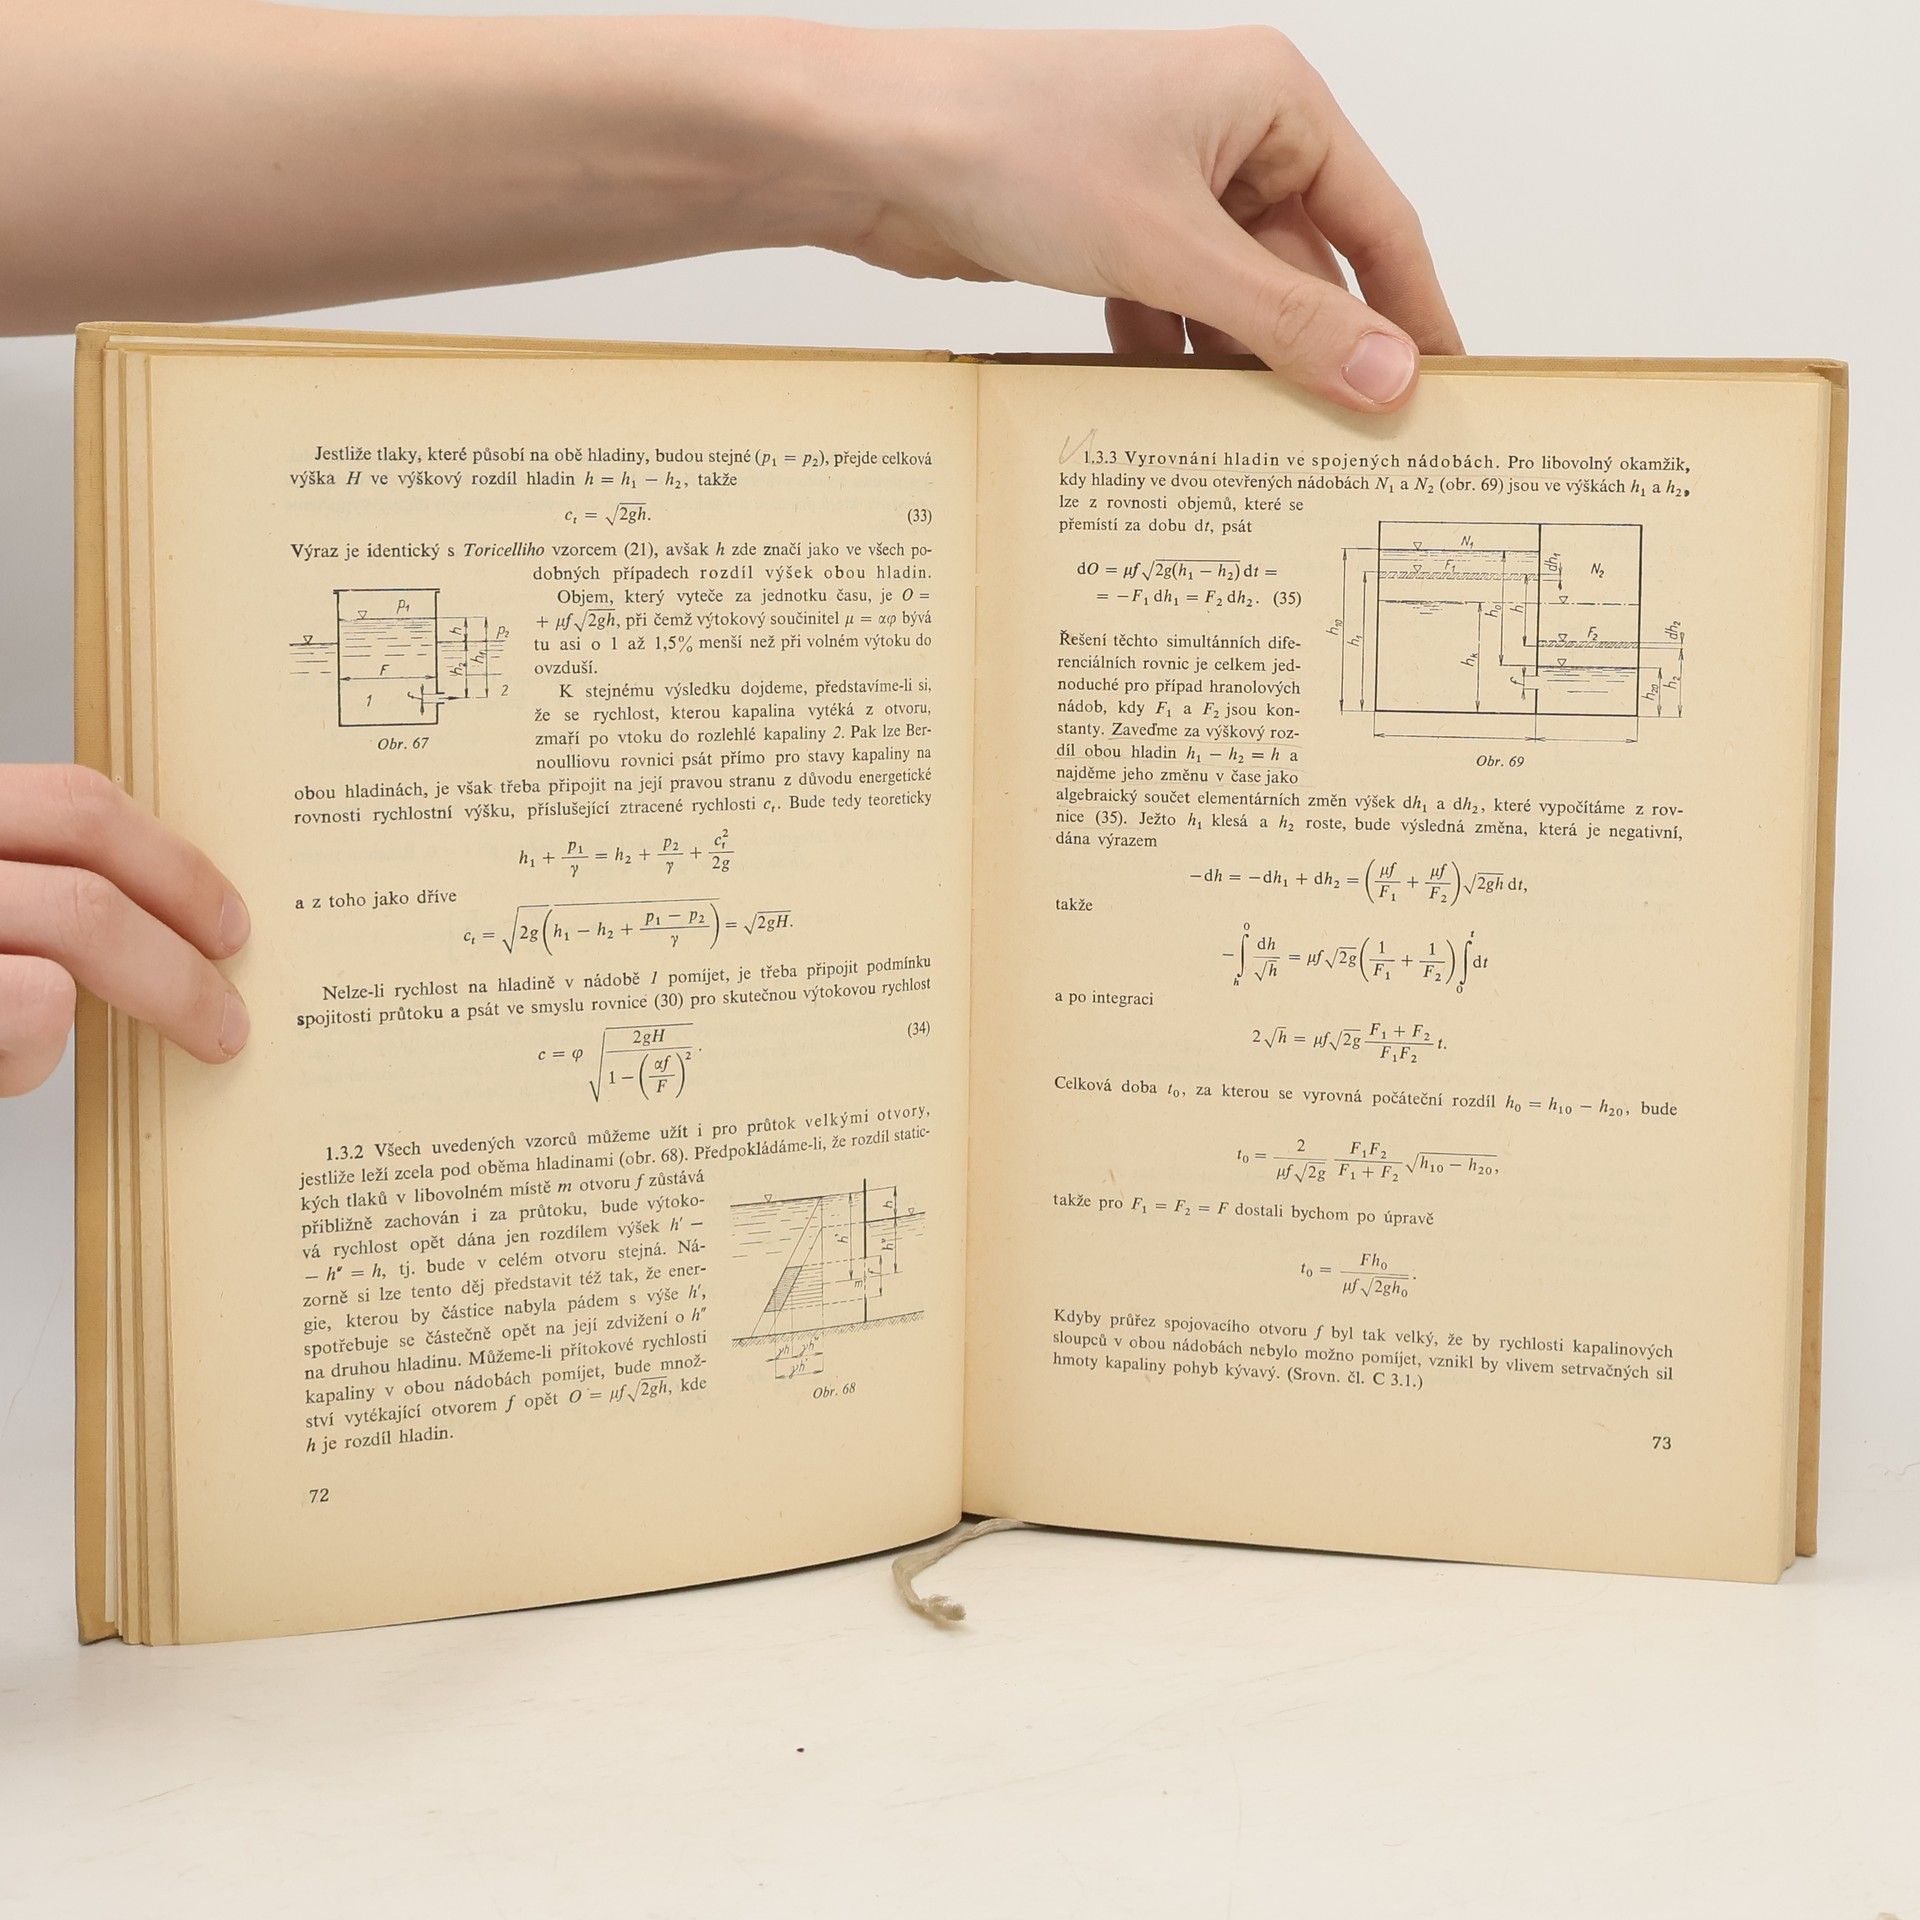 Jestliže tlaky, které působí na obě hladiny, budou stejné (p₁ = p₂), přejde celková
výška H ve výškový rozdíl hladin h = h₁ − h₂, takže
cₜ = √2gh. (33)
Výraz je identický s Toricelliho vzorcem (21), avšak h zde značí jako ve všech po-
dobných případech rozdíl výšek obou hladin.
Objem, který vyteče za jednotku času, je O =
+ μf√2gh, při čemž výtokový součinitel μ = αφ bývá
tu asi o 1 až 1,5% menší než při volném výtoku do
ovzduší.
K stejnému výsledku dojdeme, představíme-li si,
že se rychlost, kterou kapalina vytéká z otvoru,
zmaří po vtoku do rozlehlé kapaliny 2. Pak lze Ber-
noulliovu rovnici psát přímo pro stavy kapaliny na
p₁
p₂
h
h₂
h₁
F
f
1
2
Obr. 67
obou hladinách, je však třeba připojit na její pravou stranu z důvodu energetické
rovnosti rychlostní výšku, příslušející ztracené rychlosti cₜ. Bude tedy teoreticky
h₁ + p₁/γ = h₂ + p₂/γ + cₜ²/2g
a z toho jako dříve
cₜ = √2g(h₁ − h₂ + (p₁ − p₂)/γ) = √2gH.
Nelze-li rychlost na hladině v nádobě 1 pomíjet, je třeba připojit podmínku
spojitosti průtoku a psát ve smyslu rovnice (30) pro skutečnou výtokovou rychlost
c = φ √(2gH/(1 − (αf/F)²)). (34)
1.3.2 Všech uvedených vzorců můžeme užít i pro průtok velkými otvory,
jestliže leží zcela pod oběma hladinami (obr. 68). Předpokládáme-li, že rozdíl static-
kých tlaků v libovolném místě m otvoru f zůstává
přibližně zachován i za průtoku, bude výtoko-
vá rychlost opět dána jen rozdílem výšek h′ −
− h″ = h, tj. bude v celém otvoru stejná. Ná-
zorně si lze tento děj představit též tak, že ener-
gie, kterou by částice nabyla pádem s výše h′,
spotřebuje se částečně opět na její zdvižení o h″
na druhou hladinu. Můžeme-li přítokové rychlosti
kapaliny v obou nádobách pomíjet, bude množ-
ství vytékající otvorem f opět O = μf√2gh, kde
h je rozdíl hladin.
h
h′
h″
m
f
γh
γh″
γh′
Obr. 68
72
1.3.3 Vyrovnání hladin ve spojených nádobách. Pro libovolný okamžik,
kdy hladiny ve dvou otevřených nádobách N₁ a N₂ (obr. 69) jsou ve výškách h₁ a h₂,
lze z rovnosti objemů, které se
přemístí za dobu dt, psát
dO = μf√2g(h₁ − h₂) dt =
= −F₁ dh₁ = F₂ dh₂. (35)
Řešení těchto simultánních dife-
renciálních rovnic je celkem jed-
noduché pro případ hranolových
nádob, kdy F₁ a F₂ jsou kon-
stanty. Zaveďme za výškový roz-
díl obou hladin h₁ − h₂ = h a
najděme jeho změnu v čase jako
N₁
F₁
N₂
F₂
h₁₀
h₁
hₖ
h₀
h
dh₁
dh₂
f
h₂₀
h₂
Obr. 69
algebraický součet elementárních změn výšek dh₁ a dh₂, které vypočítáme z rov-
nice (35). Ježto h₁ klesá a h₂ roste, bude výsledná změna, která je negativní,
dána výrazem
−dh = −dh₁ + dh₂ = (μf/F₁ + μf/F₂)√2gh dt,
takže
−∫ₕ⁰ dh/√h = μf√2g(1/F₁ + 1/F₂)∫₀ᵗ dt
a po integraci
2√h = μf√2g (F₁ + F₂)/(F₁F₂) t.
Celková doba t₀, za kterou se vyrovná počáteční rozdíl h₀ = h₁₀ − h₂₀, bude
t₀ = 2/(μf√2g) F₁F₂/(F₁ + F₂) √h₁₀ − h₂₀,
takže pro F₁ = F₂ = F dostali bychom po úpravě
t₀ = Fh₀/(μf√2gh₀).
Kdyby průřez spojovacího otvoru f byl tak velký, že by rychlosti kapalinových
sloupců v obou nádobách nebylo možno pomíjet, vznikl by vlivem setrvačných sil
hmoty kapaliny pohyb kývavý. (Srovn. čl. C 3.1.)
73